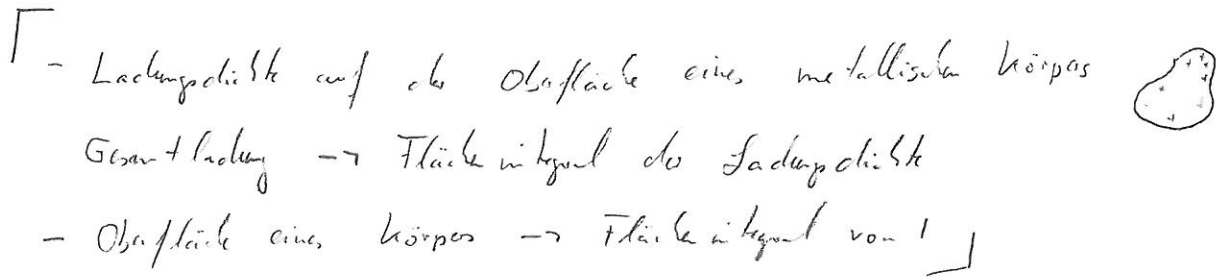 - Ladungsdichte auf der Oberfläche eines metallischen Körpers
Gesamtladung → Flächenintegral der Ladungsdichte
- Oberfläche eines Körpers → Flächenintegral von 1